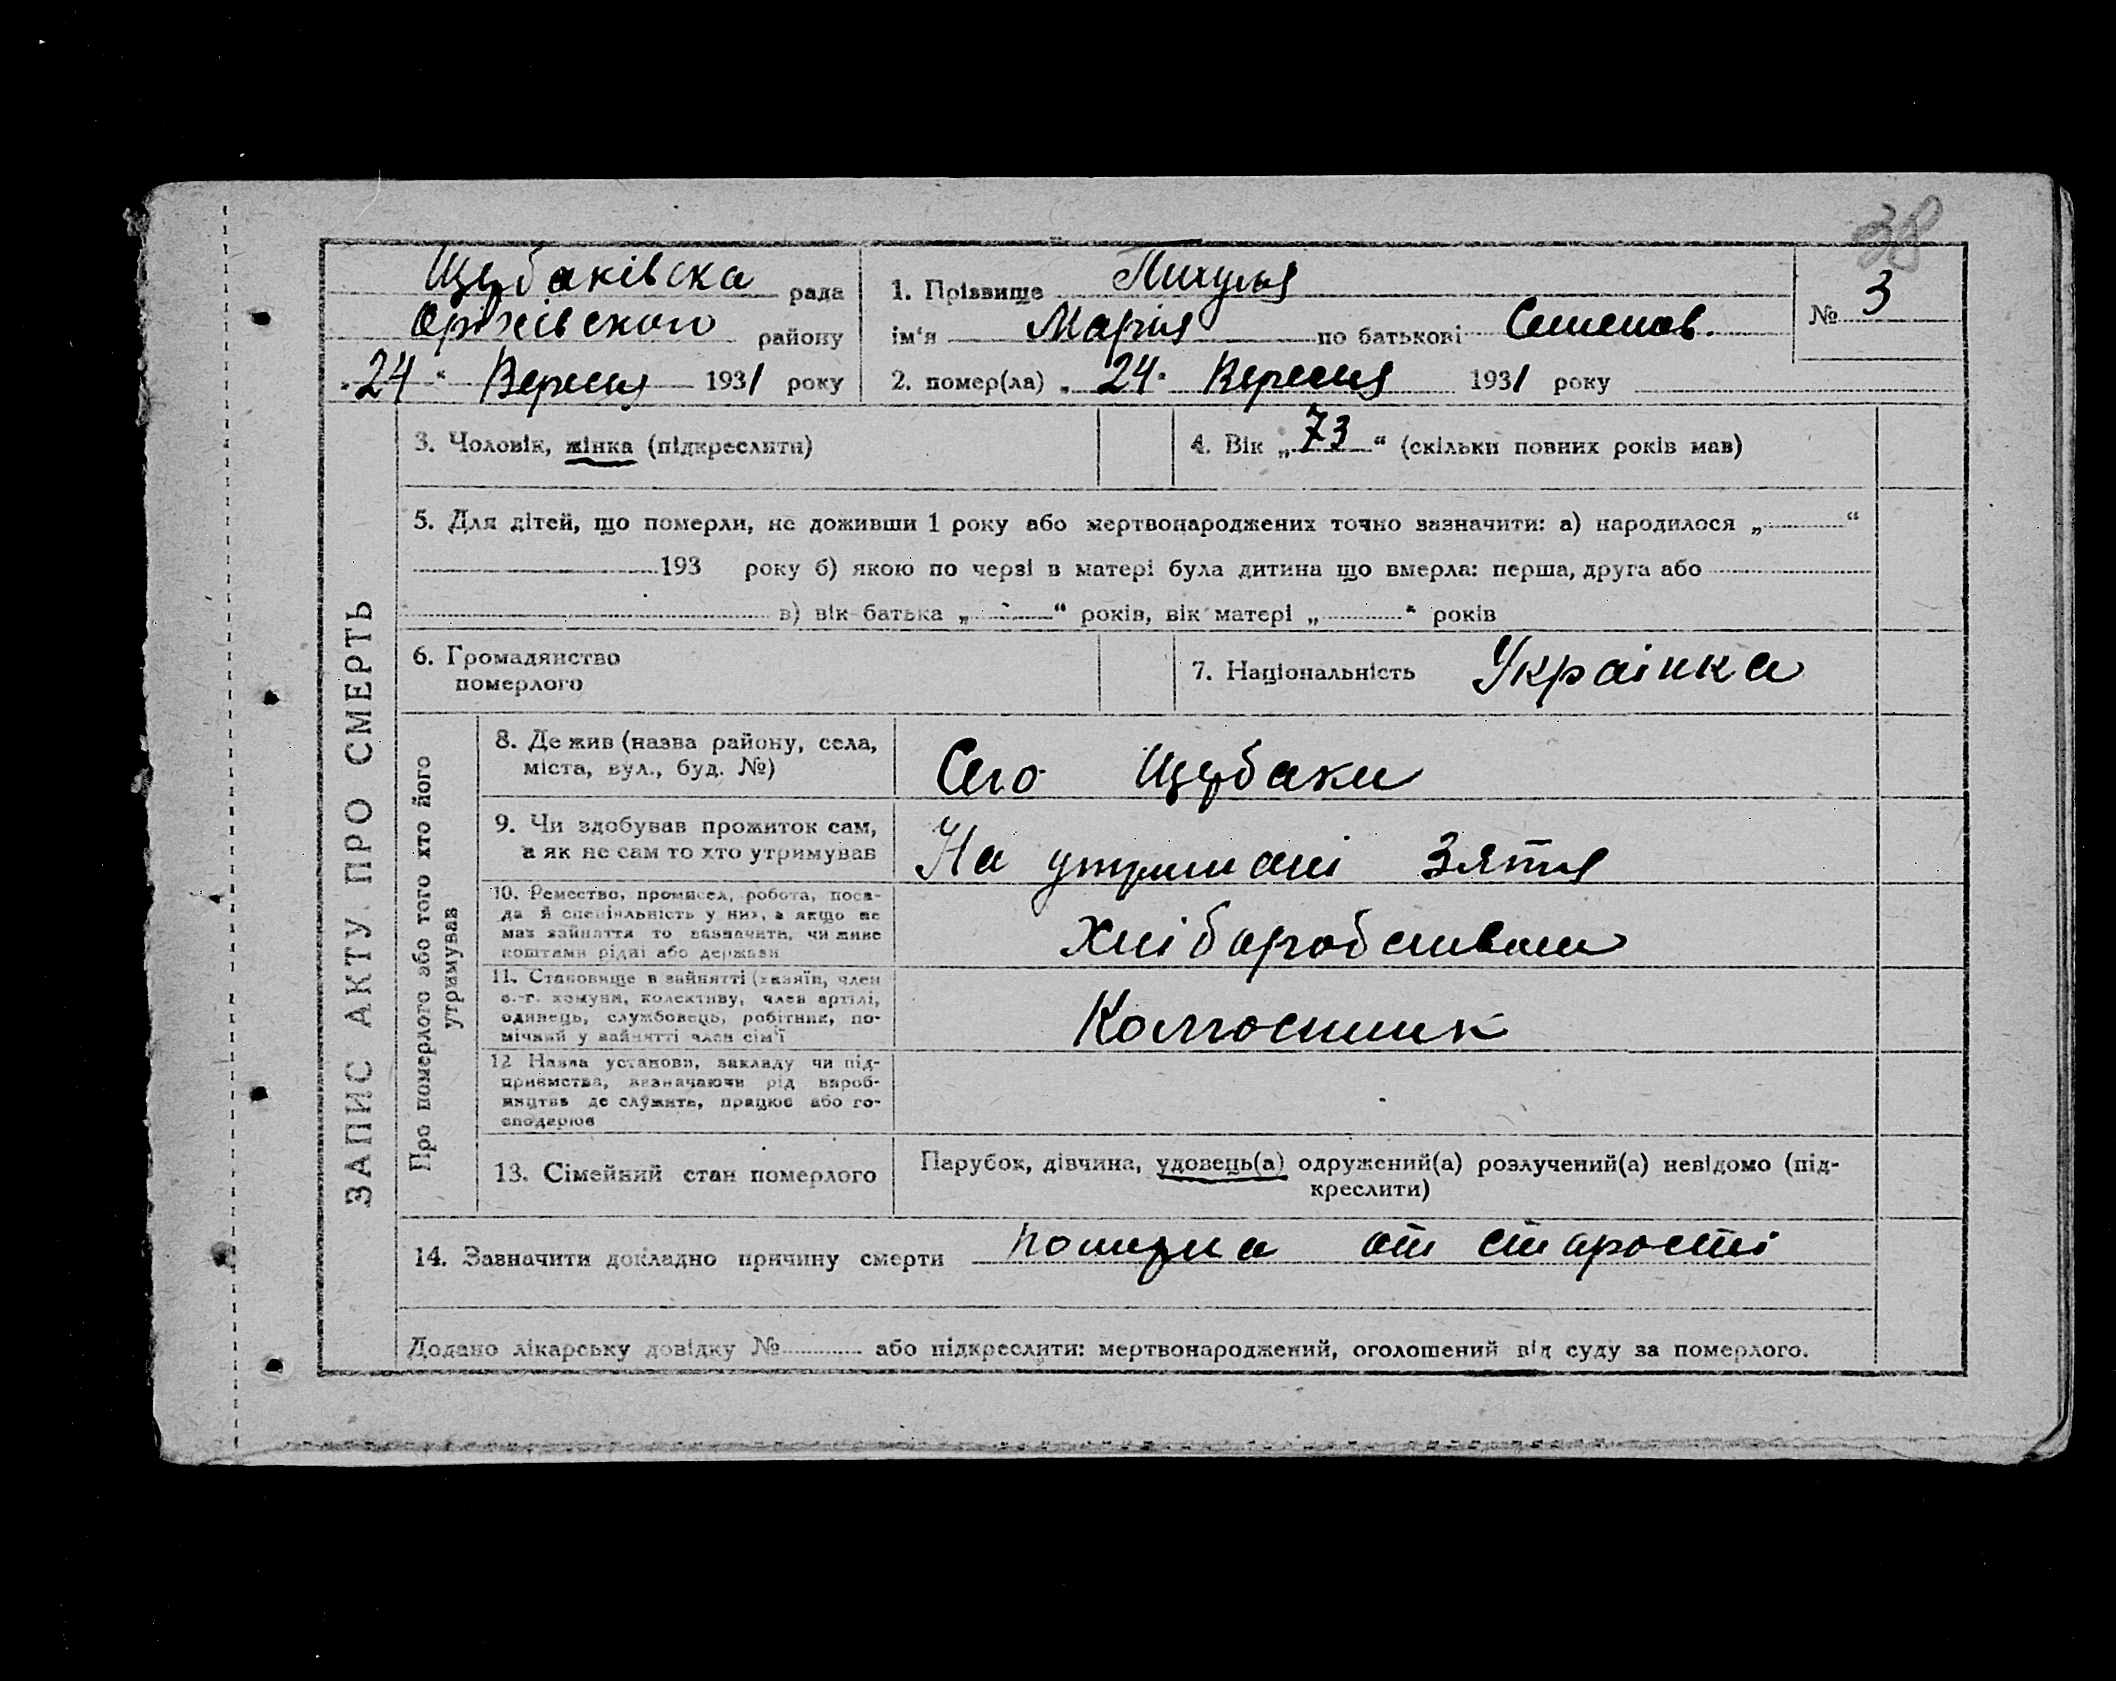 38
Щербаківска рада
Оріхівского району
„24“ Вересня 1931 року
1. Прізвище
ім'я Марія по батькові Семенов.
2. помер(ла) „24“ Вересня 1931 року
№ 3
ЗАПИС АКТУ ПРО СМЕРТЬ
3. Чоловік, жінка (підкреслити)
4. Вік „73“ (скільки повних років мав)
5. Для дітей, що померли, не доживши 1 року або мертвонароджених точно зазначити: а) народилося „ “
193 року б) якою по черзі в матері була дитина що вмерла: перша, друга або
в) вік батька „ “ років, вік матері „ “ років
6. Громадянство
померлого
7. Національність Українка
Про померлого або того хто його
утримував
8. Де жив (назва району, села,
міста, вул., буд. №)
Село Щербаки
9. Чи здобував прожиток сам,
а як не сам то хто утримував
На утримані зятя
10. Ремество, промисел, робота, поса-
да й спеціяльність у них, а якщо не
мав зайняття то зазначити, чи живе
коштами рідні або держави
11. Становище в зайнятті (хазяїн, член
с.-г. комуни, колективу, член артілі,
одинець, службовець, робітник, по-
мічний у зайнятті член сім'ї
Колгоспник
12 Назва установи, закладу чи під-
приємства, зазначаючи рід вироб-
ництва де служить, працює або го-
сподарює
13. Сімейний стан померлого
Парубок, дівчина, удовець(а) одружений(а) розлучений(а) невідомо (під-
креслити)
14. Зазначити докладно причину смерти померла от старости
Додано лікарську довідку № або підкреслити: мертвонароджений, оголошений від суду за померлого.